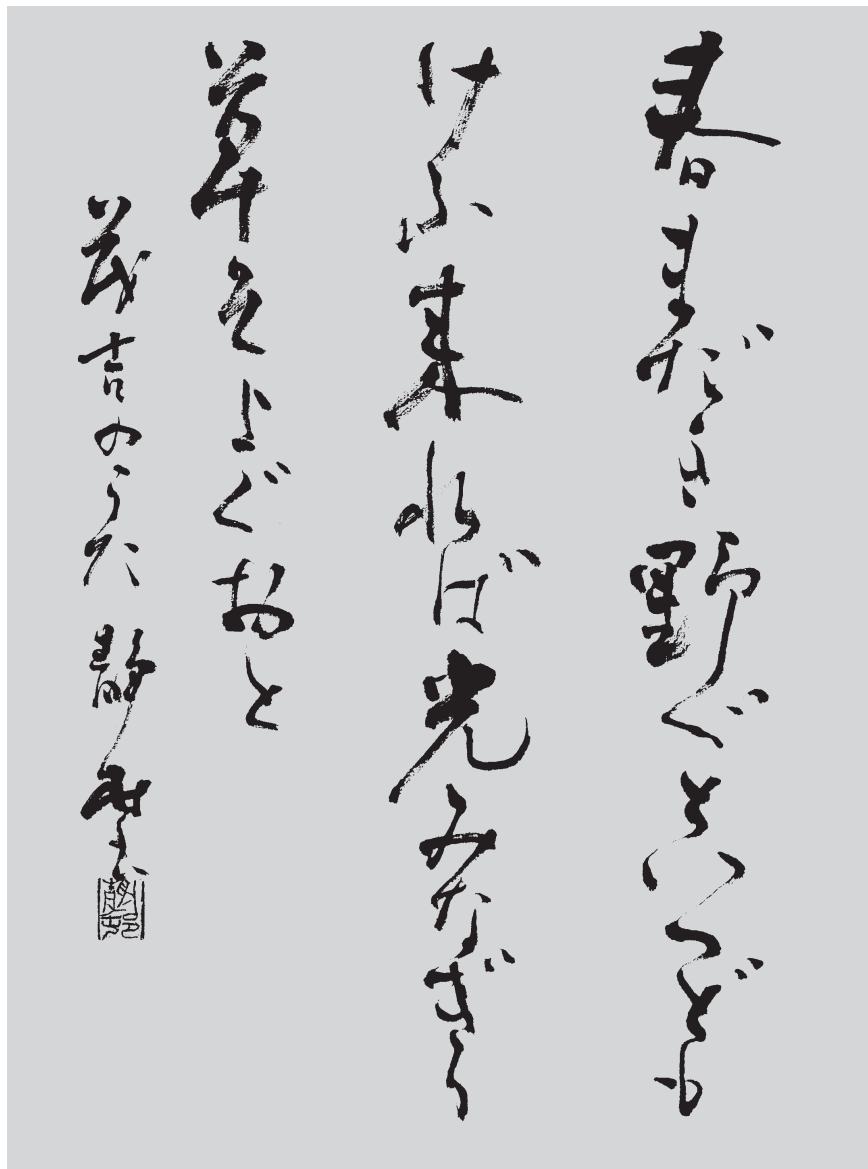 春まだき野べといへども
けふ来れば光みなぎる
草そよぐおと
茂吉のうた 静